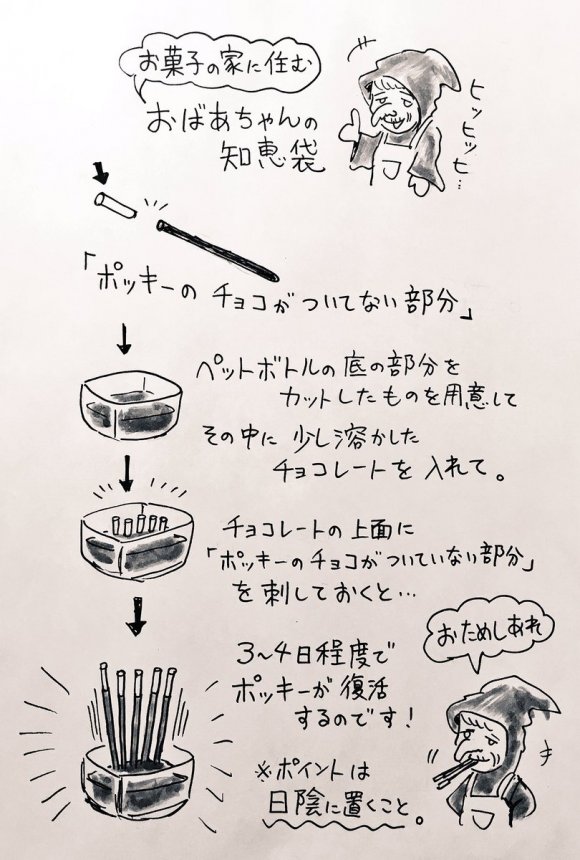 お菓子の家に住む
おばあちゃんの
知恵袋
ヒッヒッヒ…
「ポッキーの チョコがついてない部分」
ペットボトルの底の部分を
カットしたものを用意して
その中に 少し溶かした
チョコレートを 入れて。
チョコレートの上面に
「ポッキーのチョコがついていない部分」
を刺しておくと…
おためしあれ
3〜4日程度で
ポッキーが復活
するのです!
※ポイントは
日陰に置くこと。